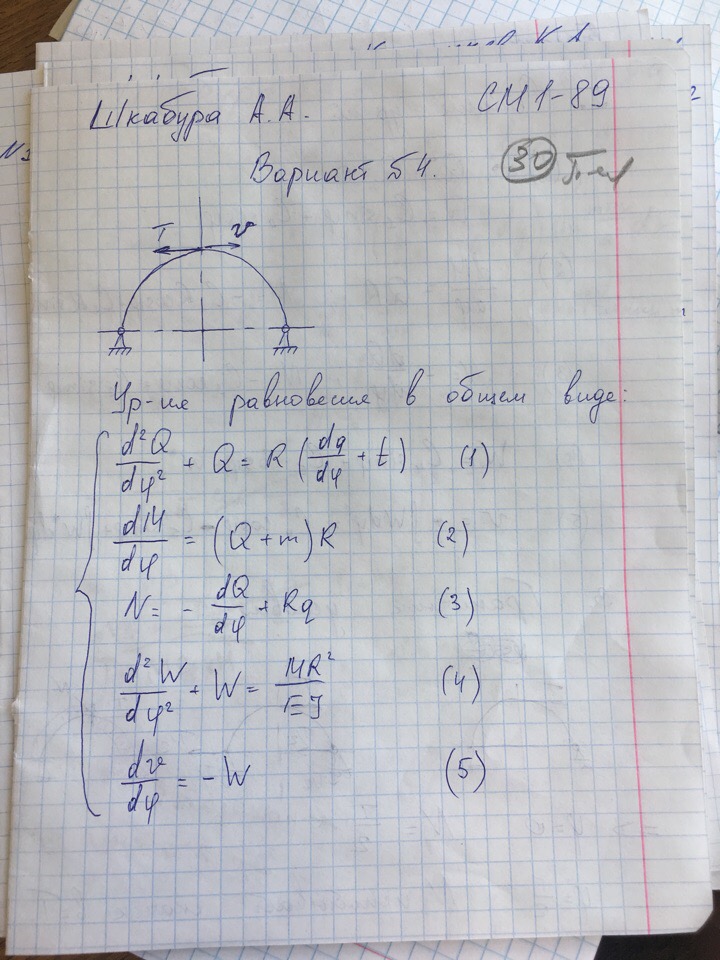 Шкабура А.А. СМ1-89
Вариант Б4. 30
T v
Ур-ие равновесия в общем виде:
d²Q/dφ² + Q = R (dq/dφ + t) (1)
dM/dφ = (Q + m) R (2)
N = - dQ/dφ + Rq (3)
d²W/dφ² + W = MR²/EJ (4)
dv/dφ = - W (5)